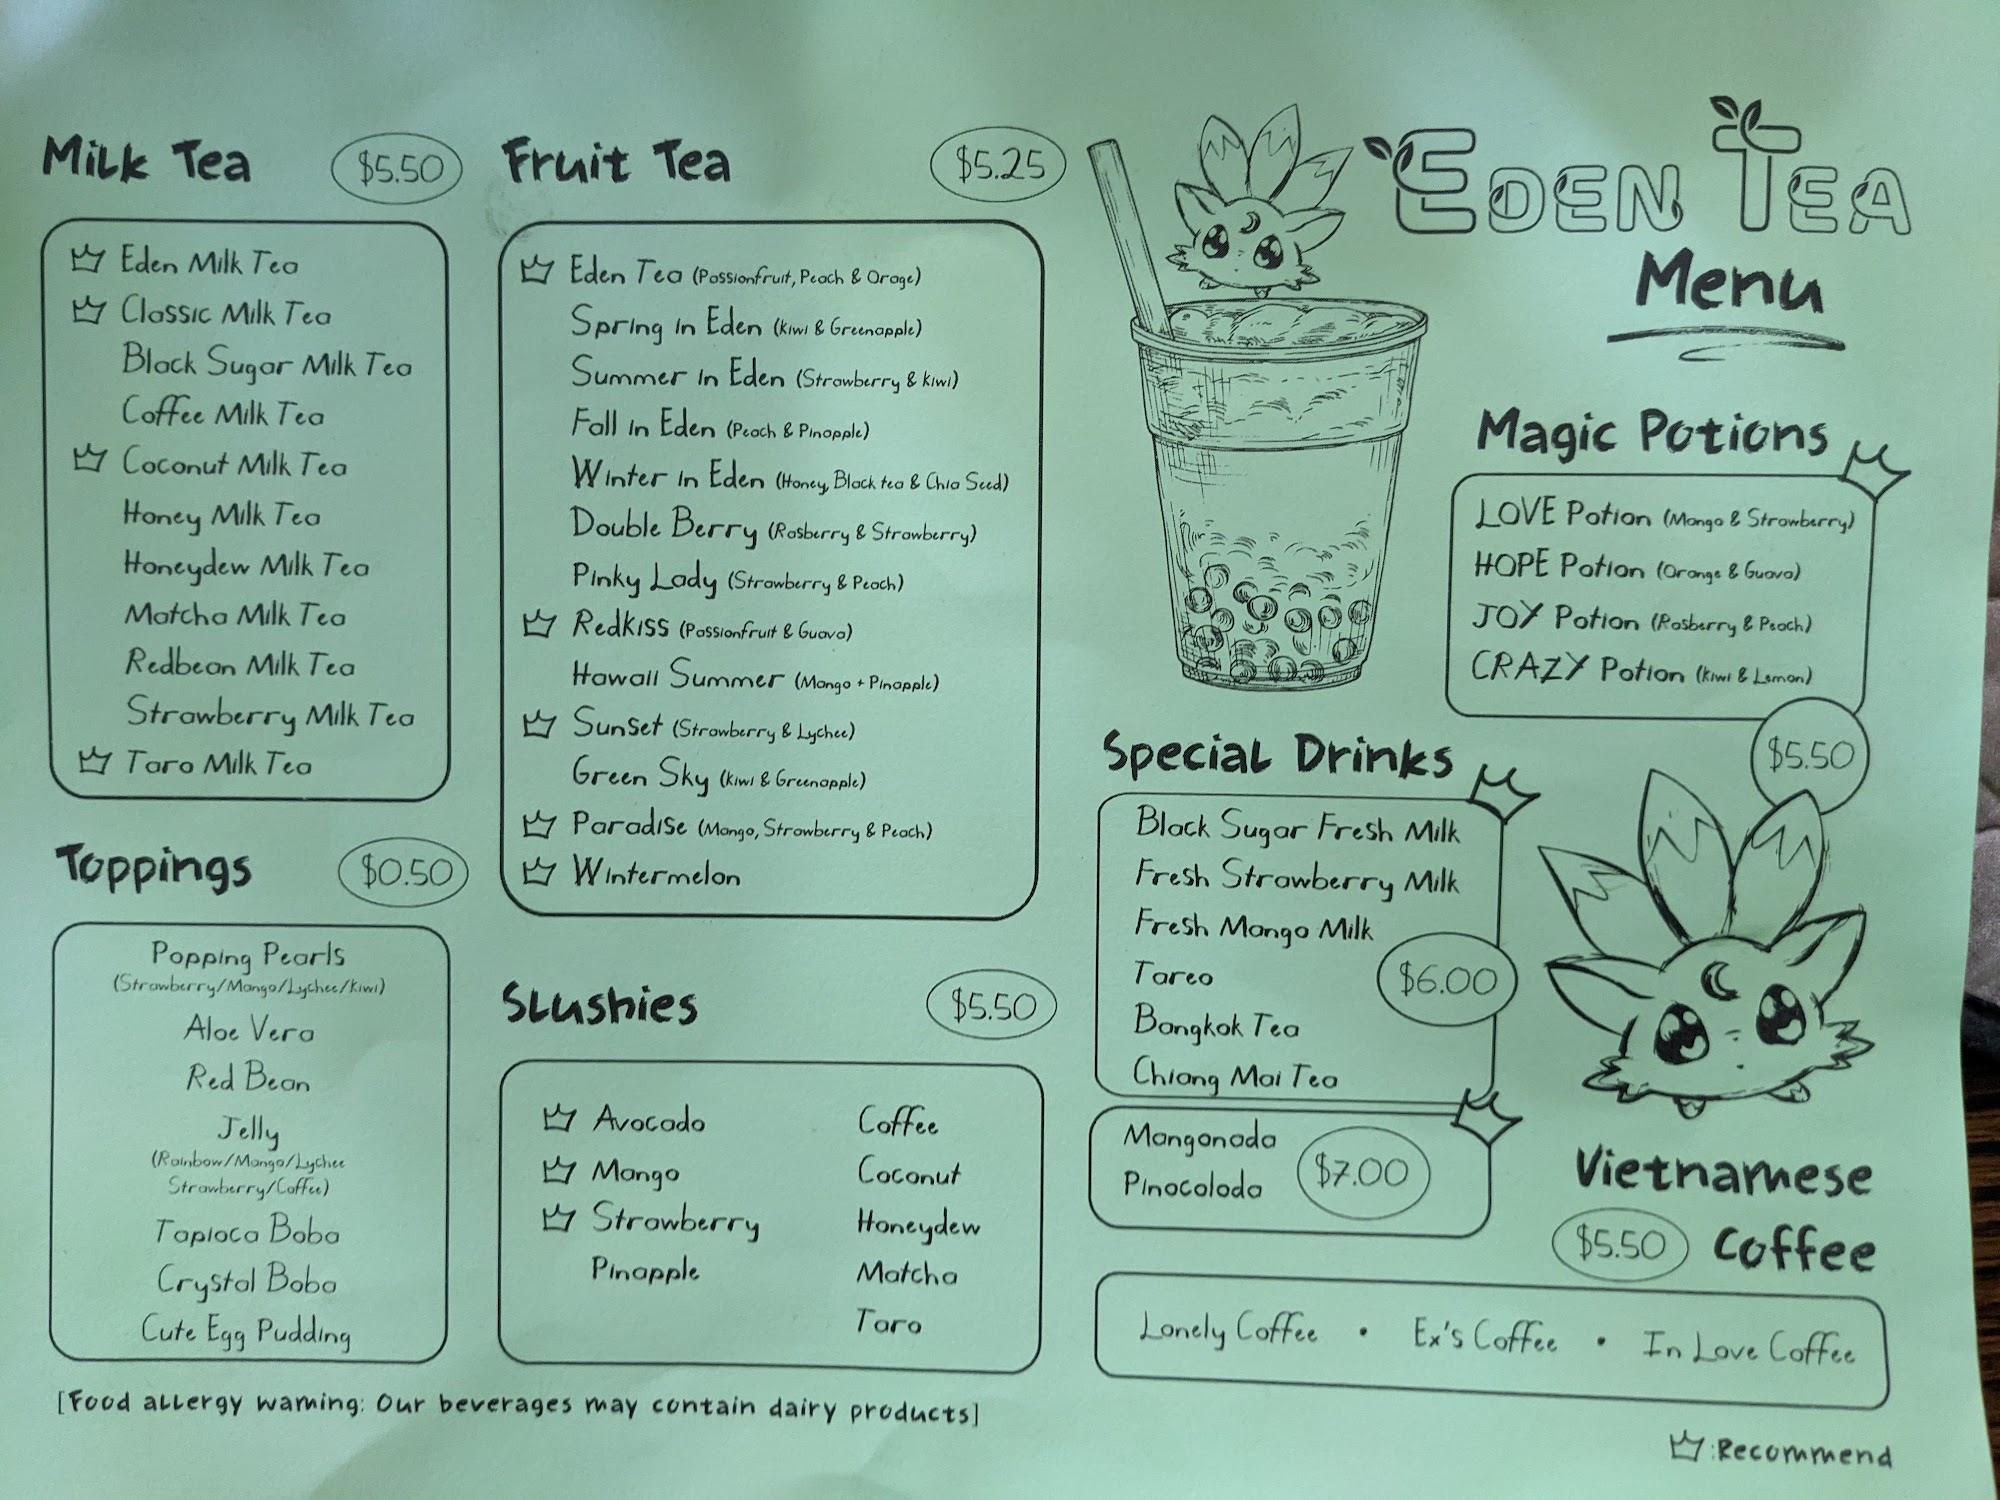 EDEN TEA
Menu
Milk Tea $5.50
Eden Milk Tea
Classic Milk Tea
Black Sugar Milk Tea
Coffee Milk Tea
Coconut Milk Tea
Honey Milk Tea
Honeydew Milk Tea
Matcha Milk Tea
Redbean Milk Tea
Strawberry Milk Tea
Taro Milk Tea
Toppings $0.50
Popping Pearls
(Strawberry/Mango/Lychee/Kiwi)
Aloe Vera
Red Bean
Jelly
(Rainbow/Mango/Lychee
Strawberry/Coffee)
Tapioca Boba
Crystal Boba
Cute Egg Pudding
Fruit Tea $5.25
Eden Tea (Passionfruit, Peach & Orage)
Spring in Eden (Kiwi & Greenapple)
Summer in Eden (Strawberry & Kiwi)
Fall in Eden (Peach & Pinapple)
Winter in Eden (Honey, Black tea & Chia Seed)
Double Berry (Rasberry & Strawberry)
Pinky Lady (Strawberry & Peach)
Redkiss (Passionfruit & Guava)
Hawaii Summer (Mango + Pinapple)
Sunset (Strawberry & Lychee)
Green Sky (Kiwi & Greenapple)
Paradise (Mango, Strawberry & Peach)
Wintermelon
Slushies $5.50
Avocado
Mango
Strawberry
Pinapple
Coffee
Coconut
Honeydew
Matcha
Taro
Magic Potions
LOVE Potion (Mango & Strawberry)
HOPE Potion (Orange & Guava)
JOY Potion (Rasberry & Peach)
CRAZY Potion (Kiwi & Lemon)
$5.50
Special Drinks
Black Sugar Fresh Milk
Fresh Strawberry Milk
Fresh Mango Milk
Tareo
Bangkok Tea
Chiang Mai Tea
$6.00
Mangonada
Pinacolada
$7.00
Vietnamese
Coffee
$5.50
Lonely Coffee • Ex's Coffee • In Love Coffee
[Food allergy warning: Our beverages may contain dairy products]
:Recommend